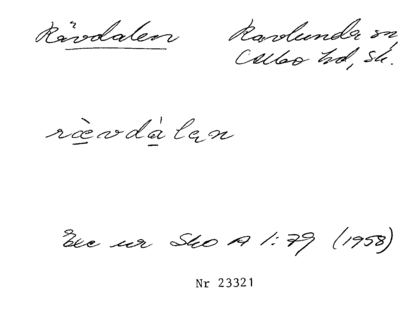 Rävdalen Ravlunda sn,
Albo hd, Sk.
rævdàlęn
Exc ur SkO A 1:79 (1958)
Nr 23321